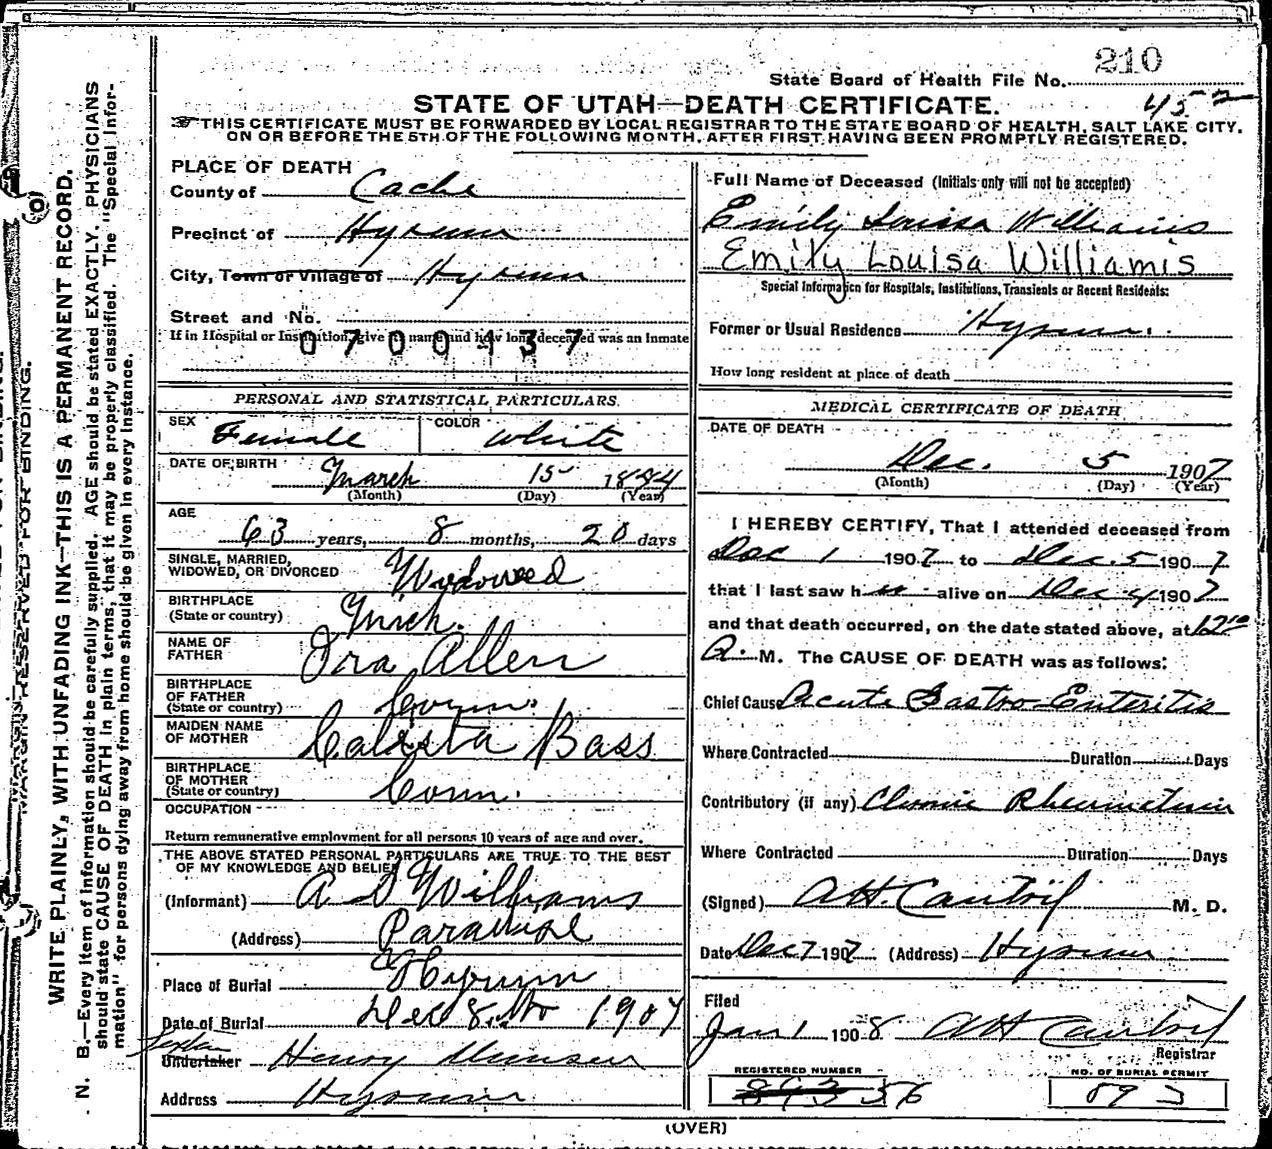 210
State Board of Health File No.
452
STATE OF UTAH—DEATH CERTIFICATE.
THIS CERTIFICATE MUST BE FORWARDED BY LOCAL REGISTRAR TO THE STATE BOARD OF HEALTH, SALT LAKE CITY,
ON OR BEFORE THE 5TH OF THE FOLLOWING MONTH, AFTER FIRST HAVING BEEN PROMPTLY REGISTERED.
MARGIN RESERVED FOR BINDING.
WRITE PLAINLY, WITH UNFADING INK—THIS IS A PERMANENT RECORD.
N. B.—Every item of information should be carefully supplied. AGE should be stated EXACTLY. PHYSICIANS
should state CAUSE OF DEATH in plain terms, that it may be properly classified. The "Special Infor-
mation" for persons dying away from home should be given in every instance.
PLACE OF DEATH
County of Cache
Precinct of Hyrum
City, Town or Village of Hyrum
Street and No.
If in Hospital or Institution, give name and how long deceased was an Inmate
0700437
PERSONAL AND STATISTICAL PARTICULARS.
SEX Female COLOR White
DATE OF BIRTH March 15 1844
(Month) (Day) (Year)
AGE
63 years, 8 months, 20 days
SINGLE, MARRIED,
WIDOWED, OR DIVORCED Widowed
BIRTHPLACE
(State or country) Mich.
NAME OF
FATHER Ira Allen
BIRTHPLACE
OF FATHER
(State or country) Conn.
MAIDEN NAME
OF MOTHER Calista Bass
BIRTHPLACE
OF MOTHER
(State or country) Conn.
OCCUPATION
Return remunerative employment for all persons 10 years of age and over.
THE ABOVE STATED PERSONAL PARTICULARS ARE TRUE TO THE BEST
OF MY KNOWLEDGE AND BELIEF
(Informant) A D Williams
(Address) Paradise
Place of Burial Hyrum
Date of Burial Dec 8th 1907
Sexton
Undertaker Henry
Address Hyrum
Full Name of Deceased (Initials only will not be accepted)
Emily Louisa Williams
Emily Louisa Williamis
Special Information for Hospitals, Institutions, Transients or Recent Residents:
Former or Usual Residence Hyrum.
How long resident at place of death
MEDICAL CERTIFICATE OF DEATH
DATE OF DEATH
Dec. 5 1907
(Month) (Day) (Year)
I HEREBY CERTIFY, That I attended deceased from
Dec 1 1907 to Dec. 5 1907
that I last saw her alive on Dec 4 1907
and that death occurred, on the date stated above, at 12 10
A. M. The CAUSE OF DEATH was as follows:
Chief Cause Acute Gastro Enteritis
Where Contracted Duration Days
Contributory (if any) Chronic Rheumatism
Where Contracted Duration Days
(Signed) AH. Cantril M. D.
Date Dec 7 1907 (Address) Hyrum
Filed
Jan 1 1908 AH Cantril
Registrar
REGISTERED NUMBER
56
NO. OF BURIAL PERMIT
893
(OVER)